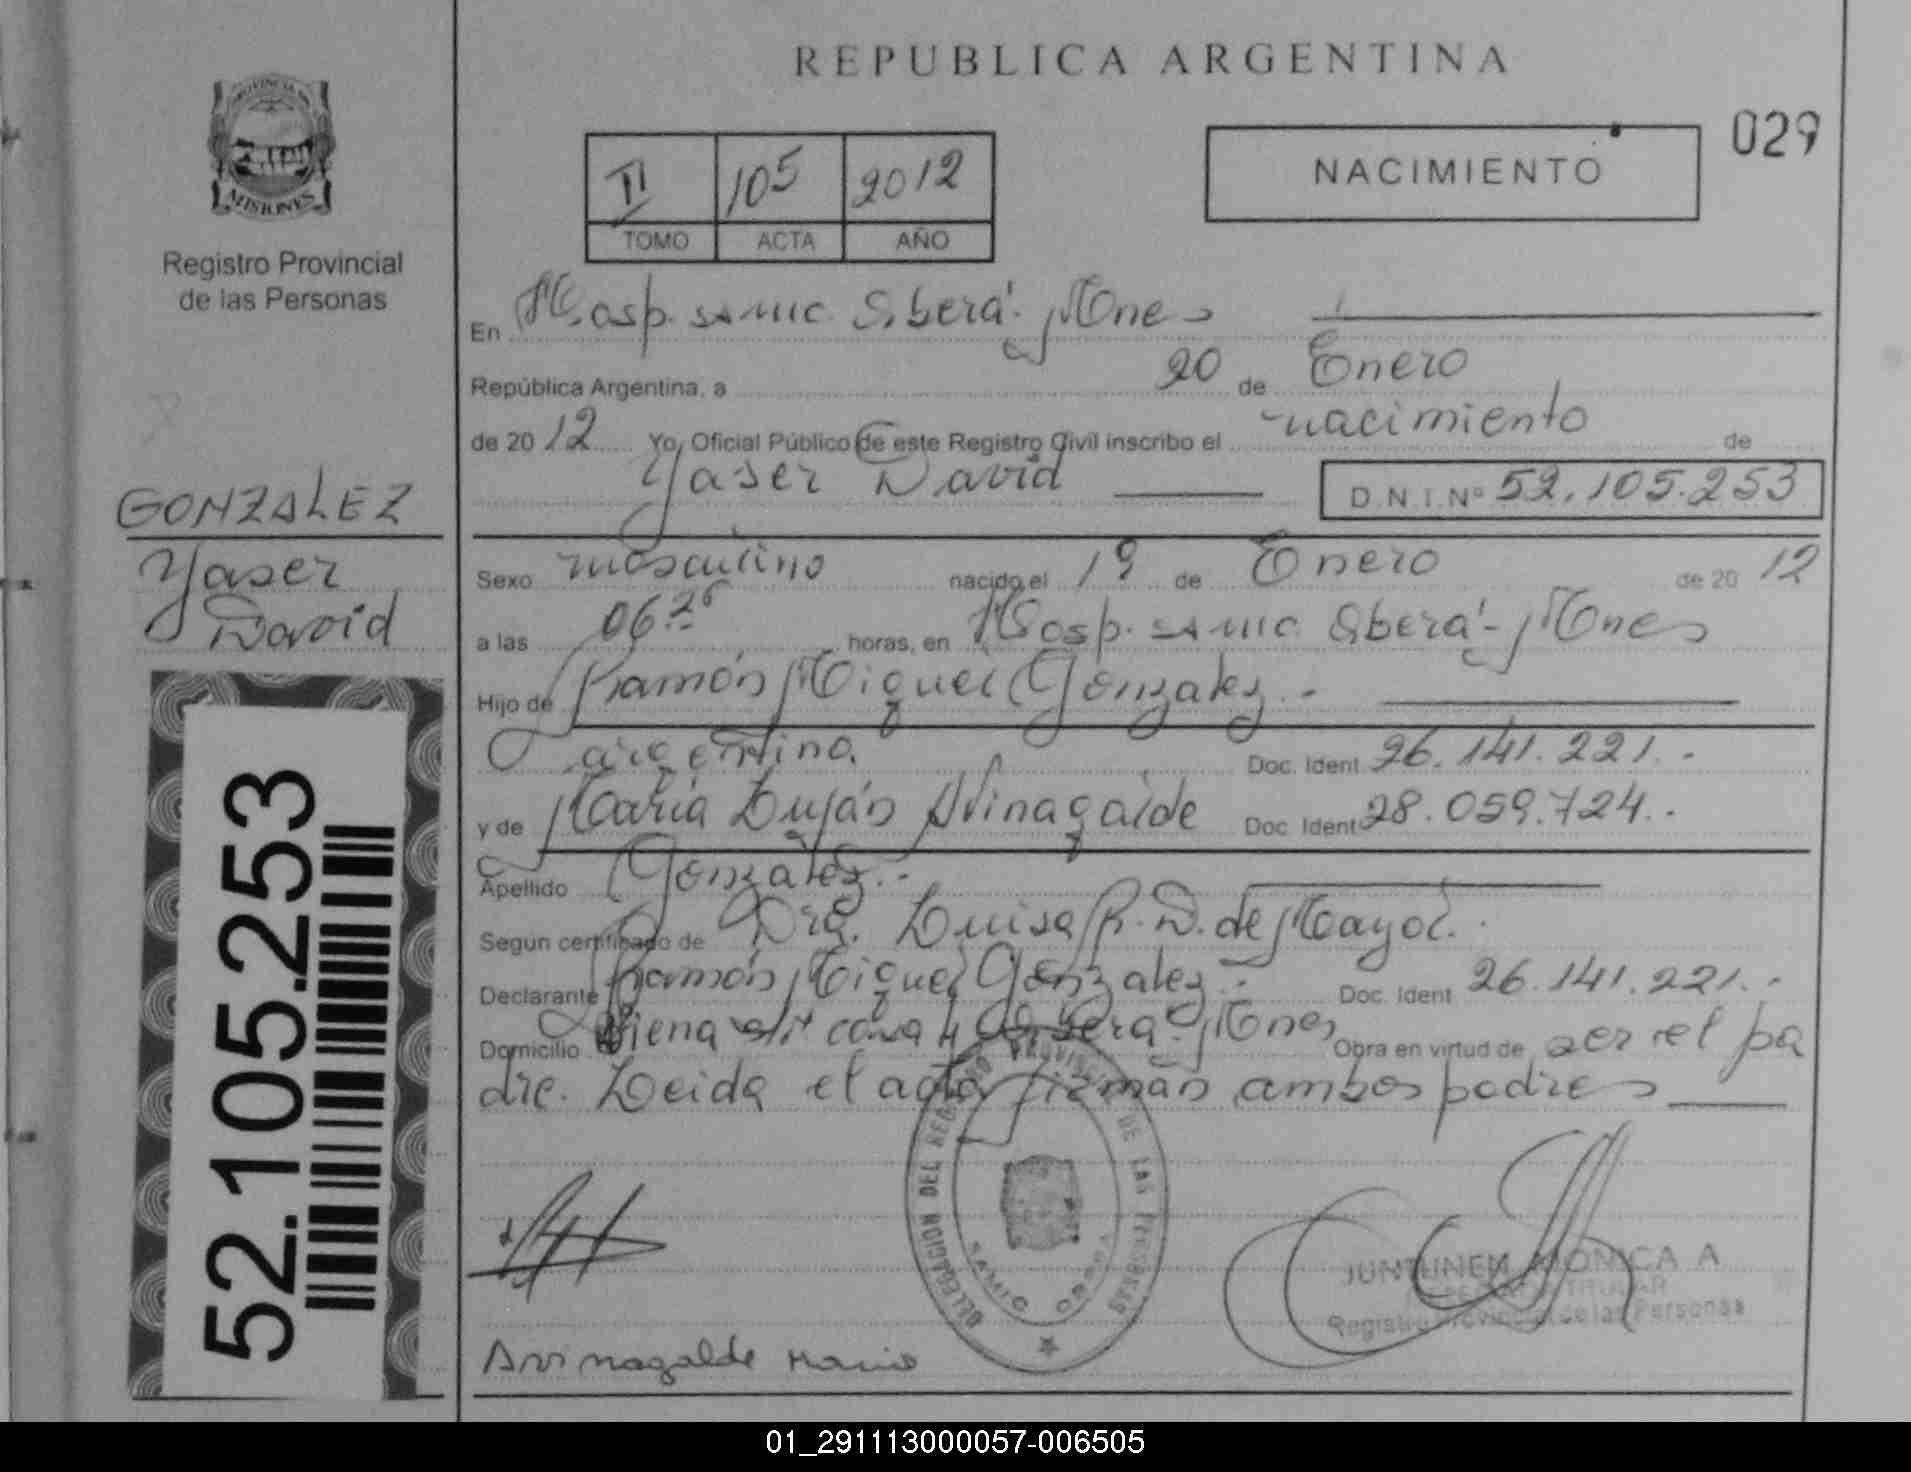 REPUBLICA ARGENTINA
029
NACIMIENTO
II 105 2012
TOMO ACTA AÑO
PROVINCIA DE
MISIONES
Registro Provincial
de las Personas
GONZALEZ
Yaser
David
52.105.253
En Hosp. samic. Oberá. Mnes
República Argentina, a 20 de Enero
de 2012 Yo, Oficial Público de este Registro Civil inscribo el nacimiento de
Yaser David D.N.I.Nº 52.105.253
Sexo masculino nacido el 19 de Enero de 2012
a las 06 horas, en Hosp. samic. Oberá - Mnes
Hijo de Ramón Miguel Gonzalez.-
argentino. Doc. Ident 26.141.221.-
y de María Luján Doc. Ident 28.059.724.-
Apellido Gonzalez.-
Según certificado de Dra. Luisa R. D. de Mayol.-
Declarante Ramón Miguel Gonzalez.- Doc. Ident 26.141.221.-
Domicilio casa 4 Oberá - Mnes Obra en virtud de ser el pa
dre. Leida el acta firman ambos padres
DELEGACION DEL REGISTRO PROVINCIAL DE LAS PERSONAS
SAMIC OBERA
JUNTUNEN MONICA A
Registro Provincial de las Personas
01_291113000057-006505